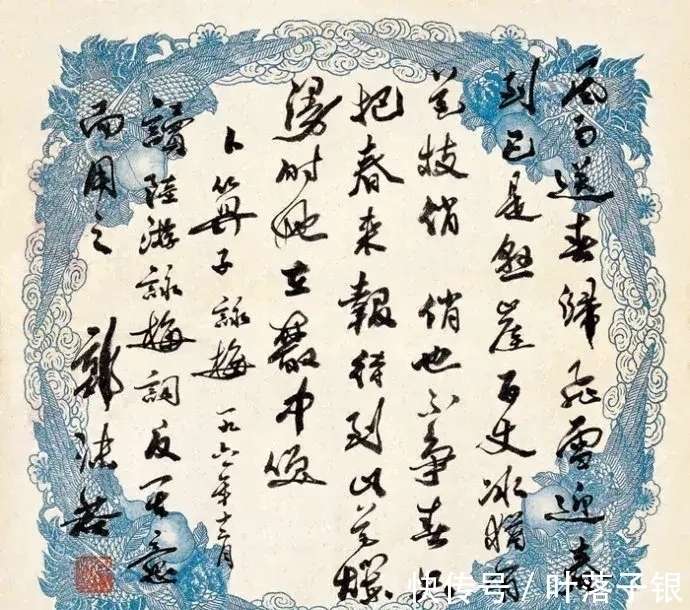 風雨送春歸飛雪迎春
到已是懸崖百丈冰猶有
花枝俏 俏也不争春只
把春来報待到山花爛
漫时她在叢中笑
卜算子詠梅 一九六一年十二月
讀陸游詠梅詞反其意
而用之 郭沫若
快传号/叶落子银